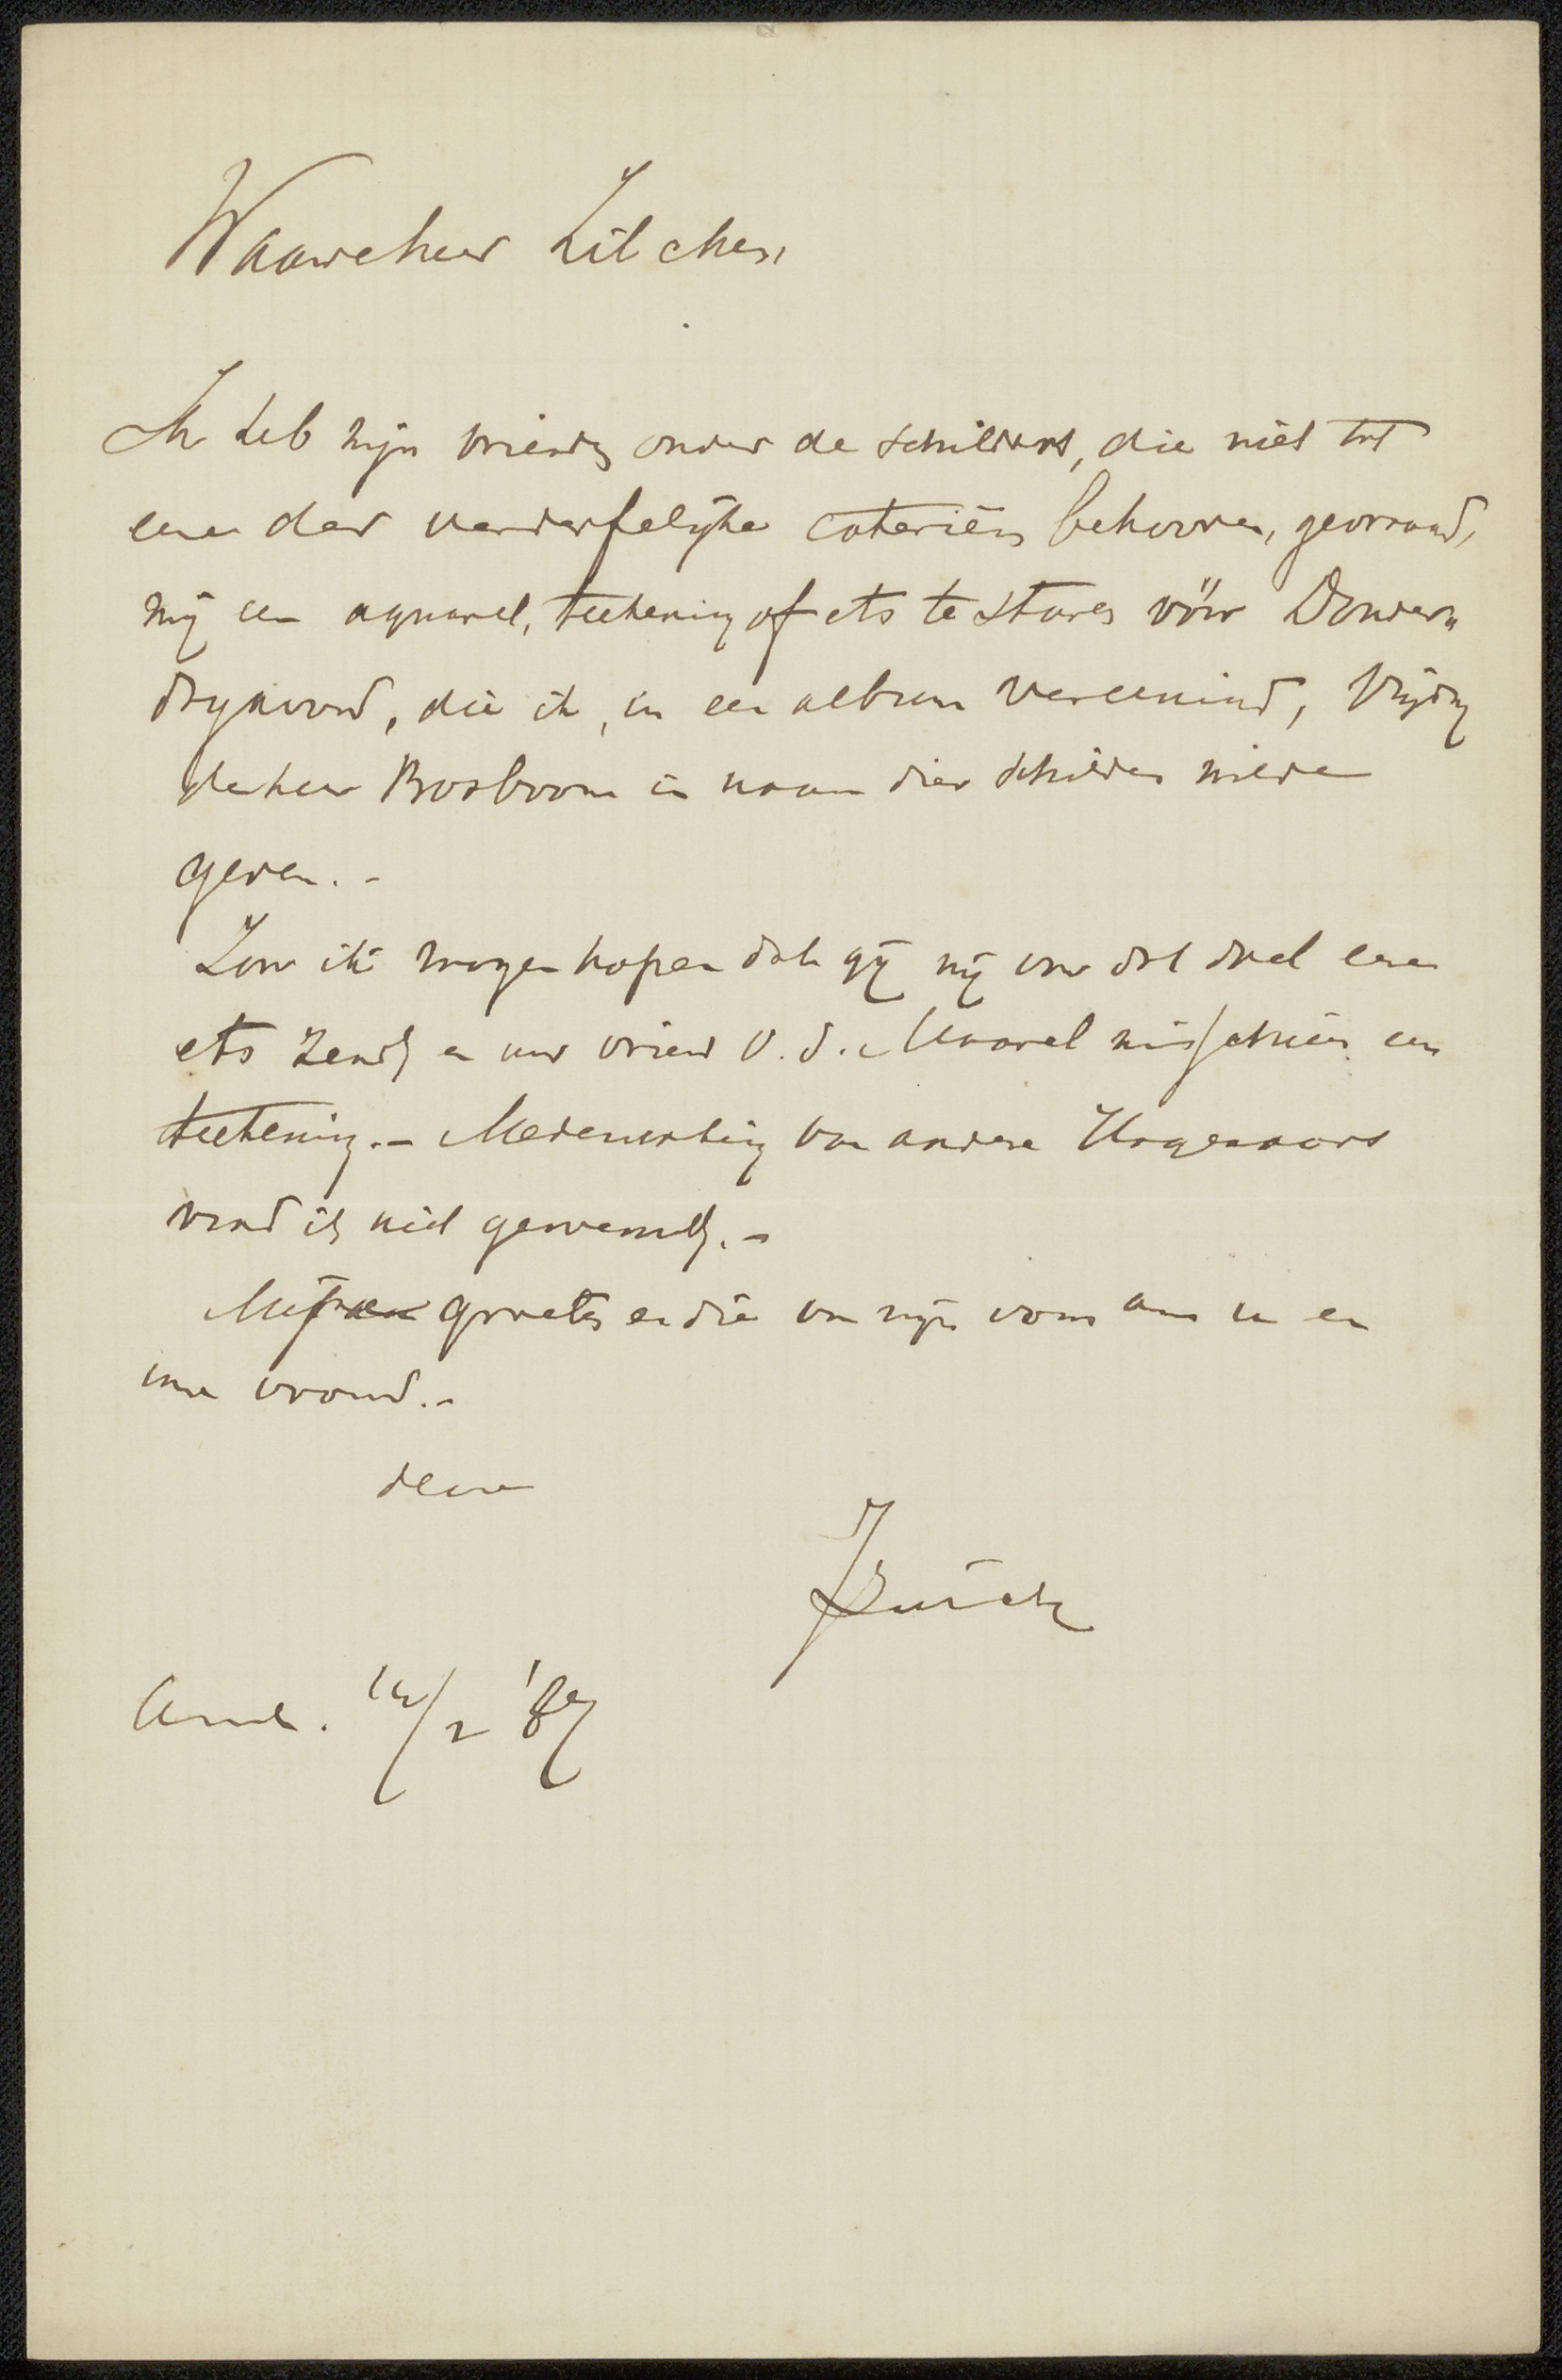 Waarde heer Zilcken,
Ik heb mijn vrienden onder de schilders, die niet tot
eene der verderfelijke coterieën behooren, gevraagd,
mij een aquarel, teekening of ets te sturen vóór Donder-
dagavond, die ik, in een album vereenind, Vrijdag
de heer Bosboom in naam dier schilders wilde
geven. -
Zou ik mogen hopen dat gij mij voor dat doel eene
ets zendt en uw vriend v. d. Maarel misschien een
teekening. - Medewerking van andere Hagenaars
vond ik niet gewenscht. -
Mijne groeten en die van mijn vrouw aan u en
uwe vrouw. -
Amst. 14/2 '87